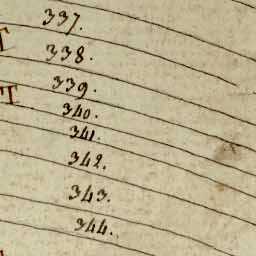 337.
T
338.
339.
T
340.
341.
342.
343.
344.